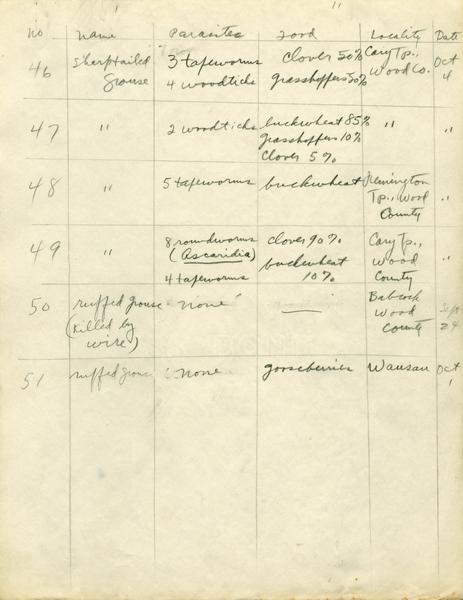 No Name Parasites Food Locality Date
46 Sharptailed Grouse 3 tapeworms 4 woodticks clover 50% grasshoppers 50% Cary Tp., Wood Co. Oct 4
47 " 2 woodticks buckwheat 85% grasshoppers 10% clover 5% " "
48 " 5 tapeworms buckwheat Remington Tp., Wood County "
49 " 8 roundworms (Ascaridia) 4 tapeworms clover 90% buckwheat 10% Cary Tp., Wood County "
50 ruffed grouse (killed by wire) "none" — Babcock Wood County Sept 24
51 ruffed grouse none gooseberries Wausau Oct 1